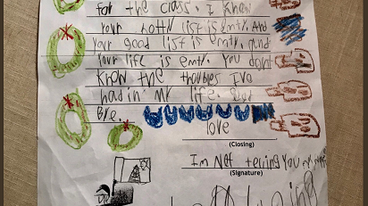 for the class. I Know
your notty list is emty. And
your good list is emty. and
your life is emty. You dont
Know the troubles Ive
had in my life. Good
Bye.
love
(Closing)
Im Not telling you my name
(Signature)